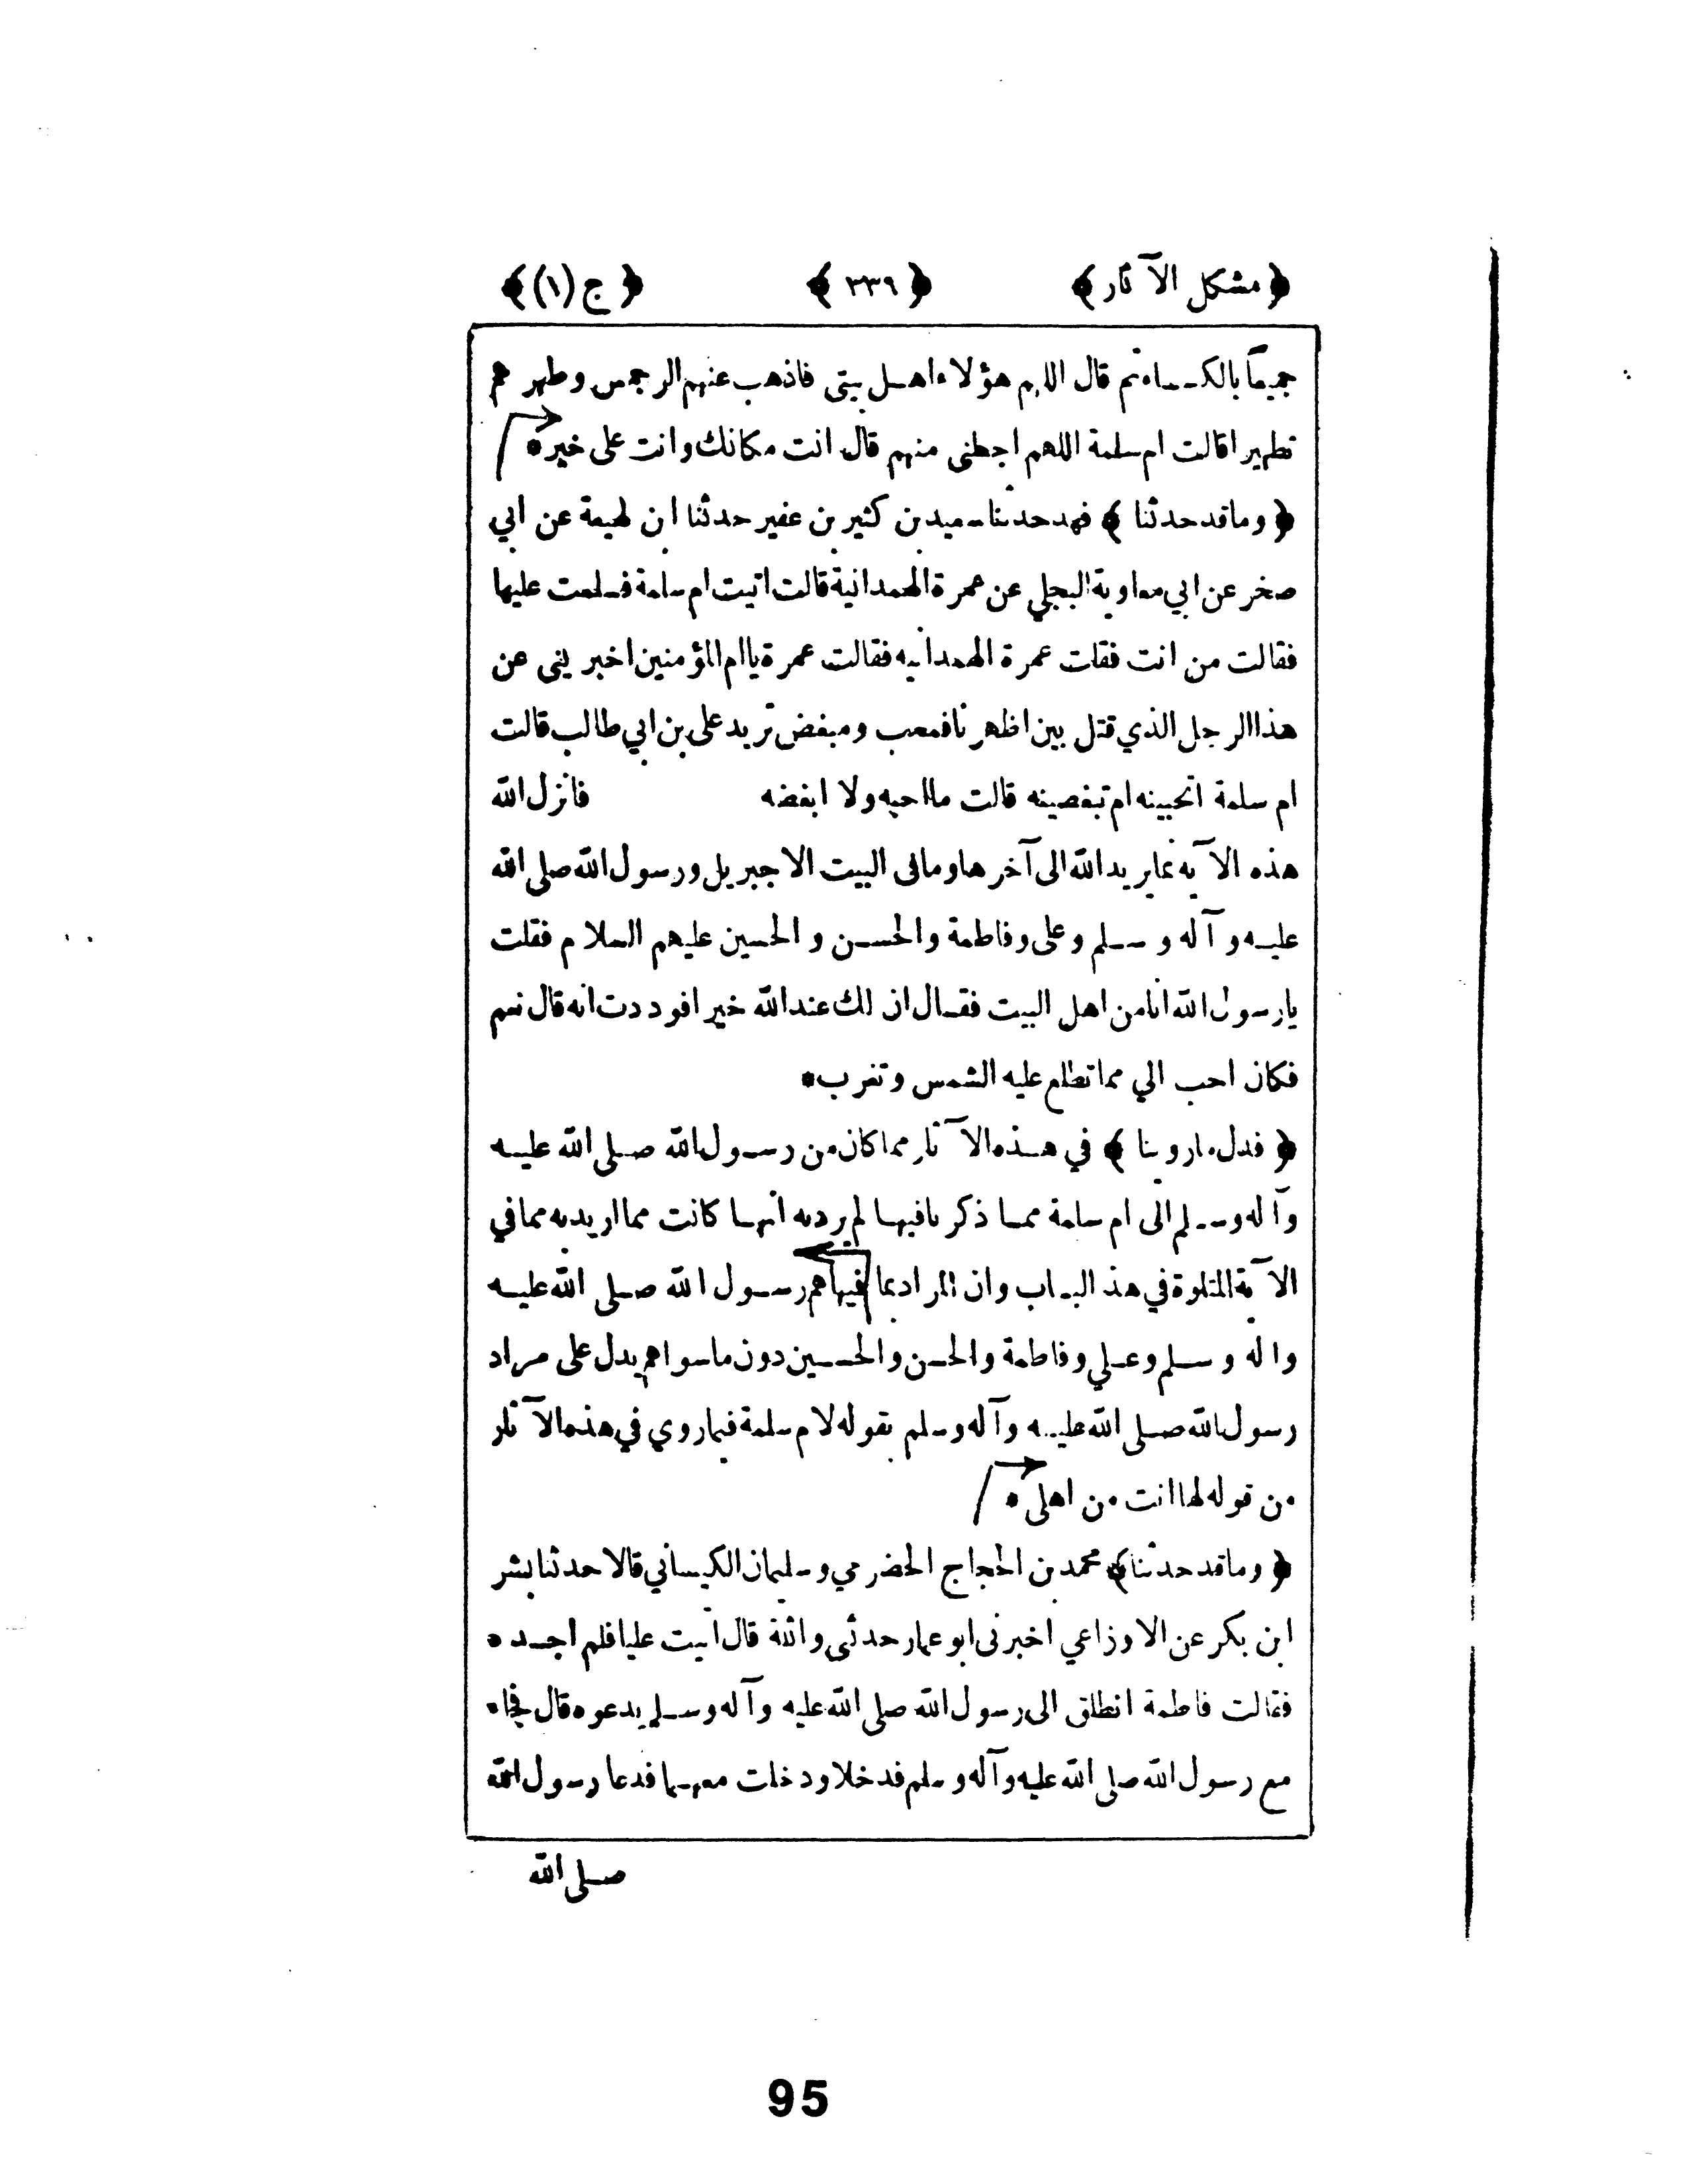 ﴿ مشكل الآثار ﴾ ﴿ ٣٣٩ ﴾ ﴿ ج (١) ﴾
جميعًا بالكساء ثم قال اللهم هؤلاء اهل بيتى فاذهب عنهم الرجس وطهرهم
تطهيرا قالت ام سلمة اللهم اجعلنى منهم قال انت مكانك وانت على خير •
﴿ وما قد حدثنا ﴾ فهد حدثنا سعيد بن كثير بن عفير حدثنا ابن لهيعة عن ابي
صخر عن ابي معاوية البجلي عن عمرة الهمدانية قالت اتيت ام سلمة فسلمت عليها
فقالت من انت فقلت عمرة الهمدانيه فقالت عمرة ياام المؤمنين اخبرينى عن
هذا الرجل الذي قتل بين اظهرنا فمحب ومبغض تريد على بن ابي طالب قالت
ام سلمة اتحبينه ام تبغضينه قالت ما احبه ولا ابغضه فانزل الله
هذه الآيه انما يريد الله الى آخرها وما فى البيت الا جبريل ورسول الله صلى الله
عليه وآله وسلم وعلى وفاطمة والحسن والحسين عليهم السلام فقلت
يارسول الله انا من اهل البيت فقال ان لك عند الله خيرا فوددت انه قال نعم
فكان احب الي مما تطلع عليه الشمس وتغرب •
﴿ فدل ما روينا ﴾ في هذه الآثار مما كان من رسول الله صلى الله عليه
وآله وسلم الى ام سلمة مما ذكرنا فيها لم يرد به انها كانت مما اريد به مما في
الآية المتلوة في هذ الباب وان المراد بما فيها هم رسول الله صلى الله عليه
واله وسلم وعلي وفاطمة والحسن والحسين دون ما سواهم يدل على مراد
رسول الله صلى الله عليه وآله وسلم بقوله لام سلمة فيما روي في هذه الآثار
من قوله لها انت من اهلى •
﴿ وما قد حدثنا ﴾ محمد بن الحجاج الحضرمي وسليمان الكيساني قالا حدثنا بشر
ابن بكر عن الاوزاعي اخبرنى ابو عمار حدثى واثلة قال اتيت عليا فلم اجده
فقالت فاطمة انطلق الى رسول الله صلى الله عليه وآله وسلم يدعوه قال فجاء
مع رسول الله صلى الله عليه وآله وسلم فدخلا ودخلت معهما فدعا رسول الله
صلى الله
95